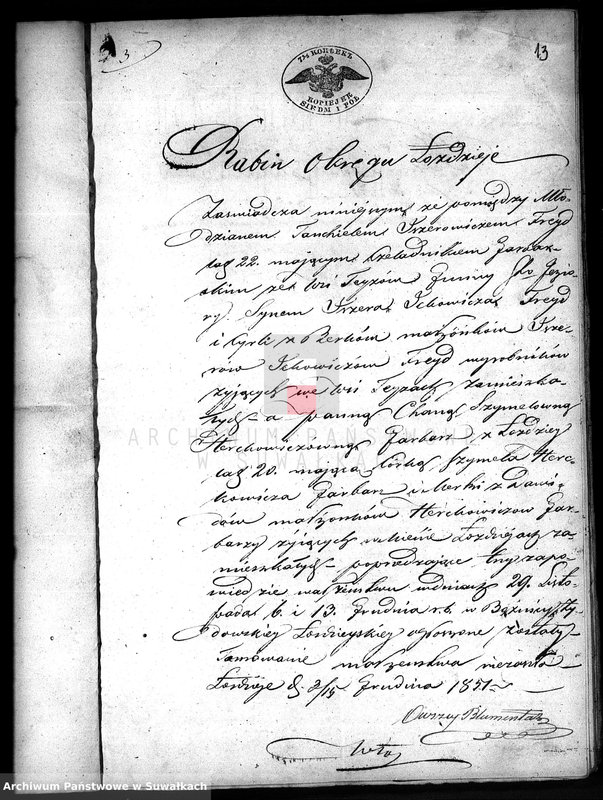 3
13
7½ КОПѢЕКЪ
KOPIEJEK
SIEDM I PÓŁ
Rabin Okręgu Łozdzieje
Zaświadcza niniejszym że pomiędzy Mło-
dzianem Tanchielem Szzerowiczem Freyd
lat 22. mającym Czeladnikiem Garbar-
skim ze Wsi Teyzów Gminy Jezio
ry Synem Ickowicza Freyd
i Cyrli z Berków małżonków
rów Ickowiczów Freyd wyrobników
żyjących we Wsi Teyzach zamieszka-
łych a Panną Chaną Szymelowną
Herckowiczówną Garbarz z Łozdziey
lat 20. mającą Córką Szymela Herc-
kowicza Garbarz i Merki z Dawi-
dów małżonków Herckowiczów Gar-
barzy żyjących w mieście Łozdziejach za-
mieszkałych poprzedzające trzy zapo-
wiedzie małżeństwa w dniach 29. Listo-
pada 6. i 13. Grudnia r. b. w Bóżnicy Ży-
dowskiej Łozdzieyskiej ogłoszone zostały
Tamowanie małżeństwa niezaszło
Łozdzieje d. 3/15 Grudnia 1851
Owzzy Blumental
ARCHIWUM PAŃSTWOWE
W SUWAŁKACH
Archiwum Państwowe w Suwałkach